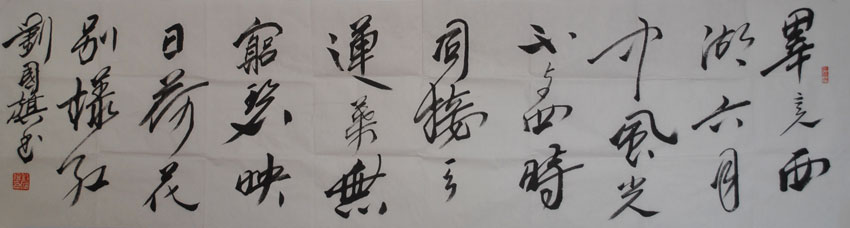 畢竟西
湖六月
中風光
不与四時
同接天
蓮葉無
窮碧映
日荷花
別樣紅
劉國旗书